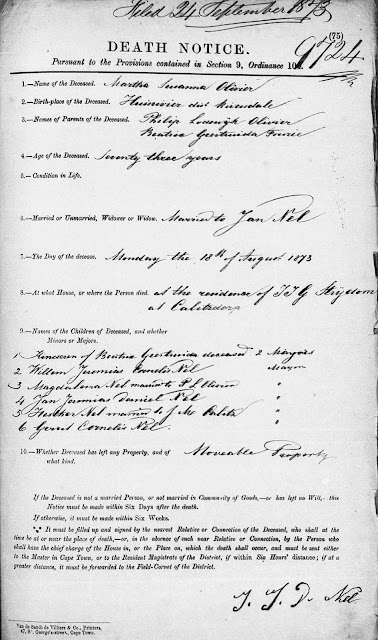 Filed 24 September 1873
(75)
DEATH NOTICE.
9724
Pursuant to the Provisions contained in Section 9, Ordinance 104.
1.—Name of the Deceased. Martha Susanna Olivier
2.—Birth-place of the Deceased. dist Riversdale
3.—Names of Parents of the Deceased. Philip Lodewyk Olivier
Beatrix Geertruida Fourie
4.—Age of the Deceased. Seventy three years
5.—Condition in Life.
6.—Married or Unmarried, Widower or Widow. Married to Jan Nel
7.—The Day of the decease. Monday the 18th of August 1873
8.—At what House, or where the Person died. at the residence of Strydom
at Calitzdorp
9.—Names of the Children of Deceased, and whether
Minors or Majors.
1 Children of Beatrix Geertruida deceased 2 Majors
2 Willem Jeremias Cornelis Nel Major
3 Magdalena Nel married to P.L. Olivier "
4 Jan Jeremias Daniel Nel "
5 Nel married to J Calitz "
6 Gerrit Cornelis Nel. "
10.—Whether Deceased has left any Property, and of
what kind. Moveable Property
If the Deceased is not a married Person, or not married in Community of Goods,—or has left no Will,—this
Notice must be made within Six Days after the Death.
If otherwise, it must be made within Six Weeks.
*** It must be filled up and signed by the nearest Relative or Connection of the Deceased, who shall at the
time be at or near the place of death,—or, in the absence of such near Relative or Connection, by the Person who
shall have the chief charge of the House in, or the Place on, which the death shall occur, and must be sent either
to the Master in Cape Town, or to the Resident Magistrate of the District, if within Six Hours' distance; if at a
greater distance, it must be forwarded to the Field-Cornet of the District.
J. J. D. Nel
Van de Sandt de Villiers & Co., Printers,
47, St. George's-street, Cape Town.